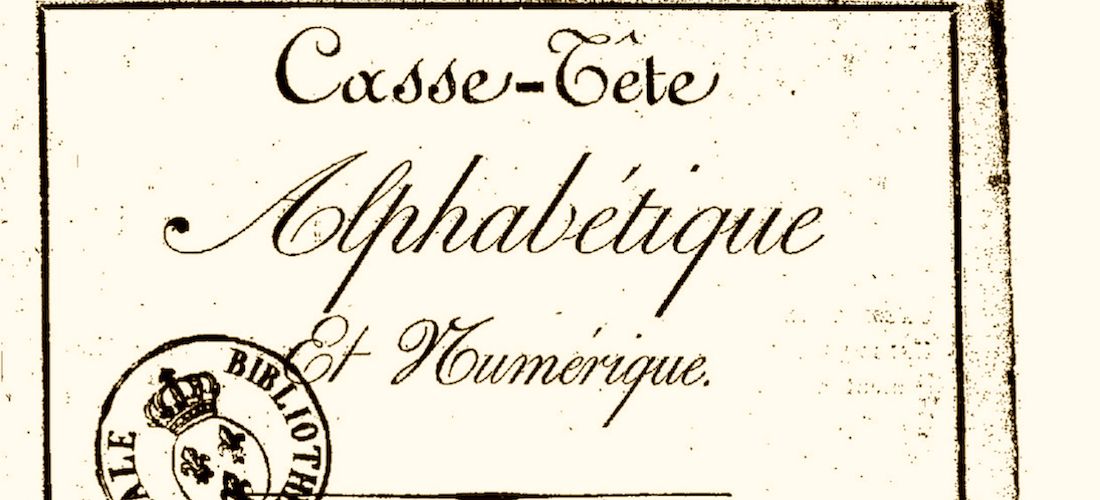 Casse-Tête
Alphabétique
Et Numérique.
BIBLIOTHE
ALE